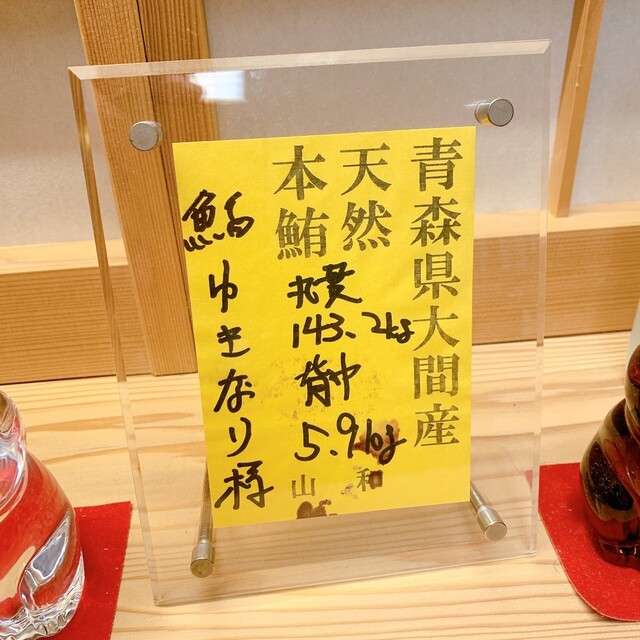 青森県大間産
天然
本鮪
丸貫
143.2kg
背中
5.9kg
山和
鮨ゆきなり様